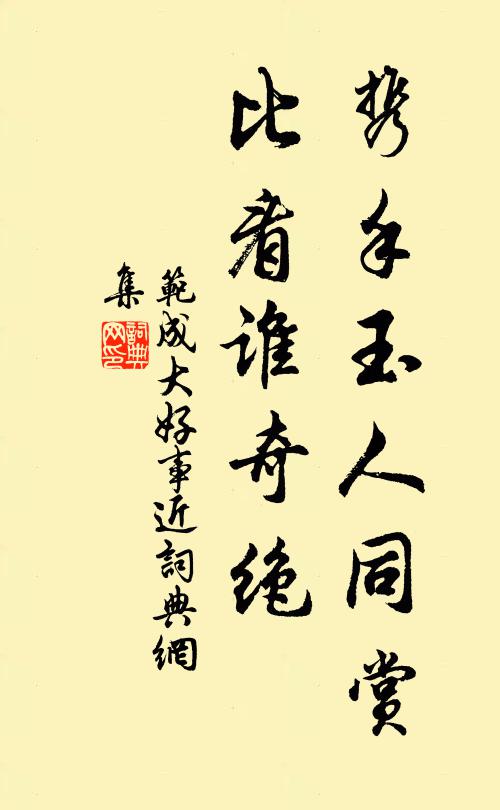 携手玉人同赏
比看谁奇绝
範成大好事近詞典網
集
詞典
网印